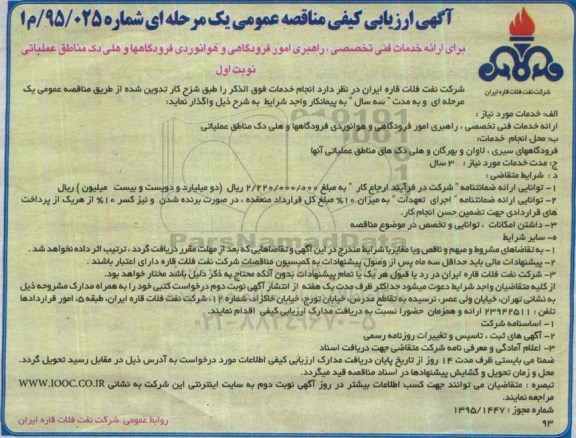 آگهی ارزیابی کیفی مناقصه عمومی یک مرحله ای شماره ۹۵/۰۲۵/م ا
برای ارائه خدمات فنی تخصصی ، راهبری امور فرودگاهی و هوانوردی فرودگاهها و هلی دک مناطق عملیاتی
نوبت اول
شرکت نفت فلات قاره ایران
شرکت نفت فلات قاره ایران در نظر دارد انجام خدمات فوق الذکر را طبق شرح کار تدوین شده از طریق مناقصه عمومی یک
مرحله ای و به مدت " سه سال " به پیمانکار واجد شرایط به شرح ذیل واگذار نماید:
الف: خدمات مورد نیاز :
ارائه خدمات فنی تخصصی ، راهبری امور فرودگاهی و هوانوردی فرودگاهها و هلی دک مناطق عملیاتی
ب: محل انجام خدمات:
فرودگاههای سیری ، لاوان و بهرگان و هلی دک های مناطق عملیاتی آنها
ج: مدت خدمات مورد نیاز : ۳ سال
د : شرایط متقاضی :
۱- توانایی ارائه ضمانتنامه " شرکت در فرآیند ارجاع کار " به مبلغ ۲/۲۲۰/۰۰۰/۰۰۰ ریال (دو میلیارد و دویست و بیست میلیون ) ریال
۲- توانایی ارائه ضمانتنامه " اجرای تعهدات " به میزان ۱۰% مبلغ کل قرارداد منعقده ، در صورت برنده شدن و نیز کسر ۱۰% از هریک از پرداخت
های قراردادی جهت تضمین حسن انجام کار.
۳- داشتن امکانات ، توانایی و تخصص در موضوع مناقصه
ه- سایر شرایط
۱- به تقاضاهای مشروط و مبهم و ناقص و یا مغایر با شرایط مندرج در این آگهی و تقاضاهایی که بعد از مهلت مقرر دریافت گردد ، ترتیب اثر داده نخواهد شد .
۲- پیشنهادات مالی باید حداقل سه ماه پس از وصول پیشنهادات به کمیسیون مناقصات شرکت نفت فلات قاره دارای اعتبار باشند .
۳- شرکت نفت فلات قاره ایران در رد یا قبول هر یک یا تمام پیشنهادات بدون آنکه محتاج به ذکر دلیل باشد مختار خواهد بود.
از کلیه متقاضیان واجد شرایط دعوت میشود حداکثر ظرف مدت یک هفته از انتشار آگهی نوبت دوم درخواست کتبی خود را به همراه مدارک مشروحه ذیل
به نشانی تهران، خیابان ولی عصر، نرسیده به تقاطع مدرس، خیابان تورج، خیابان خاکزاد، شماره ۱۲، شرکت نفت فلات قاره ایران، طبقه ۵، امور قراردادها
تلفن : ۲۳۹۴۲۵۱۱ ارائه و همزمان حضورا نسبت به دریافت مدارک ارزیابی کیفی اقدام نمایند.
۱- اساسنامه شرکت
۲- آگهی های ثبت ، تاسیس و تغییرات روزنامه رسمی
۳- اعلام آمادگی و معرفی نامه شرکت متقاضی جهت دریافت اسناد
ضمنا می بایستی ظرف مدت ۱۴ روز از تاریخ پایان دریافت مدارک ارزیابی کیفی اطلاعات مورد درخواست به آدرس ذیل در مقابل رسید تحویل گردد.
محل و زمان تحویل و گشایش پیشنهادها در اسناد مناقصه قید میگردد.
تبصره : متقاضیان می توانند جهت کسب اطلاعات بیشتر در روز آگهی نوبت دوم به سایت اینترنتی این شرکت به نشانی WWW.IOOC.CO.IR
مراجعه نمایند.
شماره مجوز : ۱۳۹۵/۱۴۴۷
۹۳
روابط عمومی شرکت نفت فلات قاره ایران